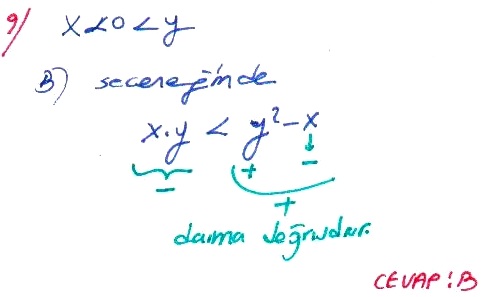 9) x < 0 < y
B) seceneğinde
x.y < y² - x
- + -
+
daima doğrudur.
CEVAP: B